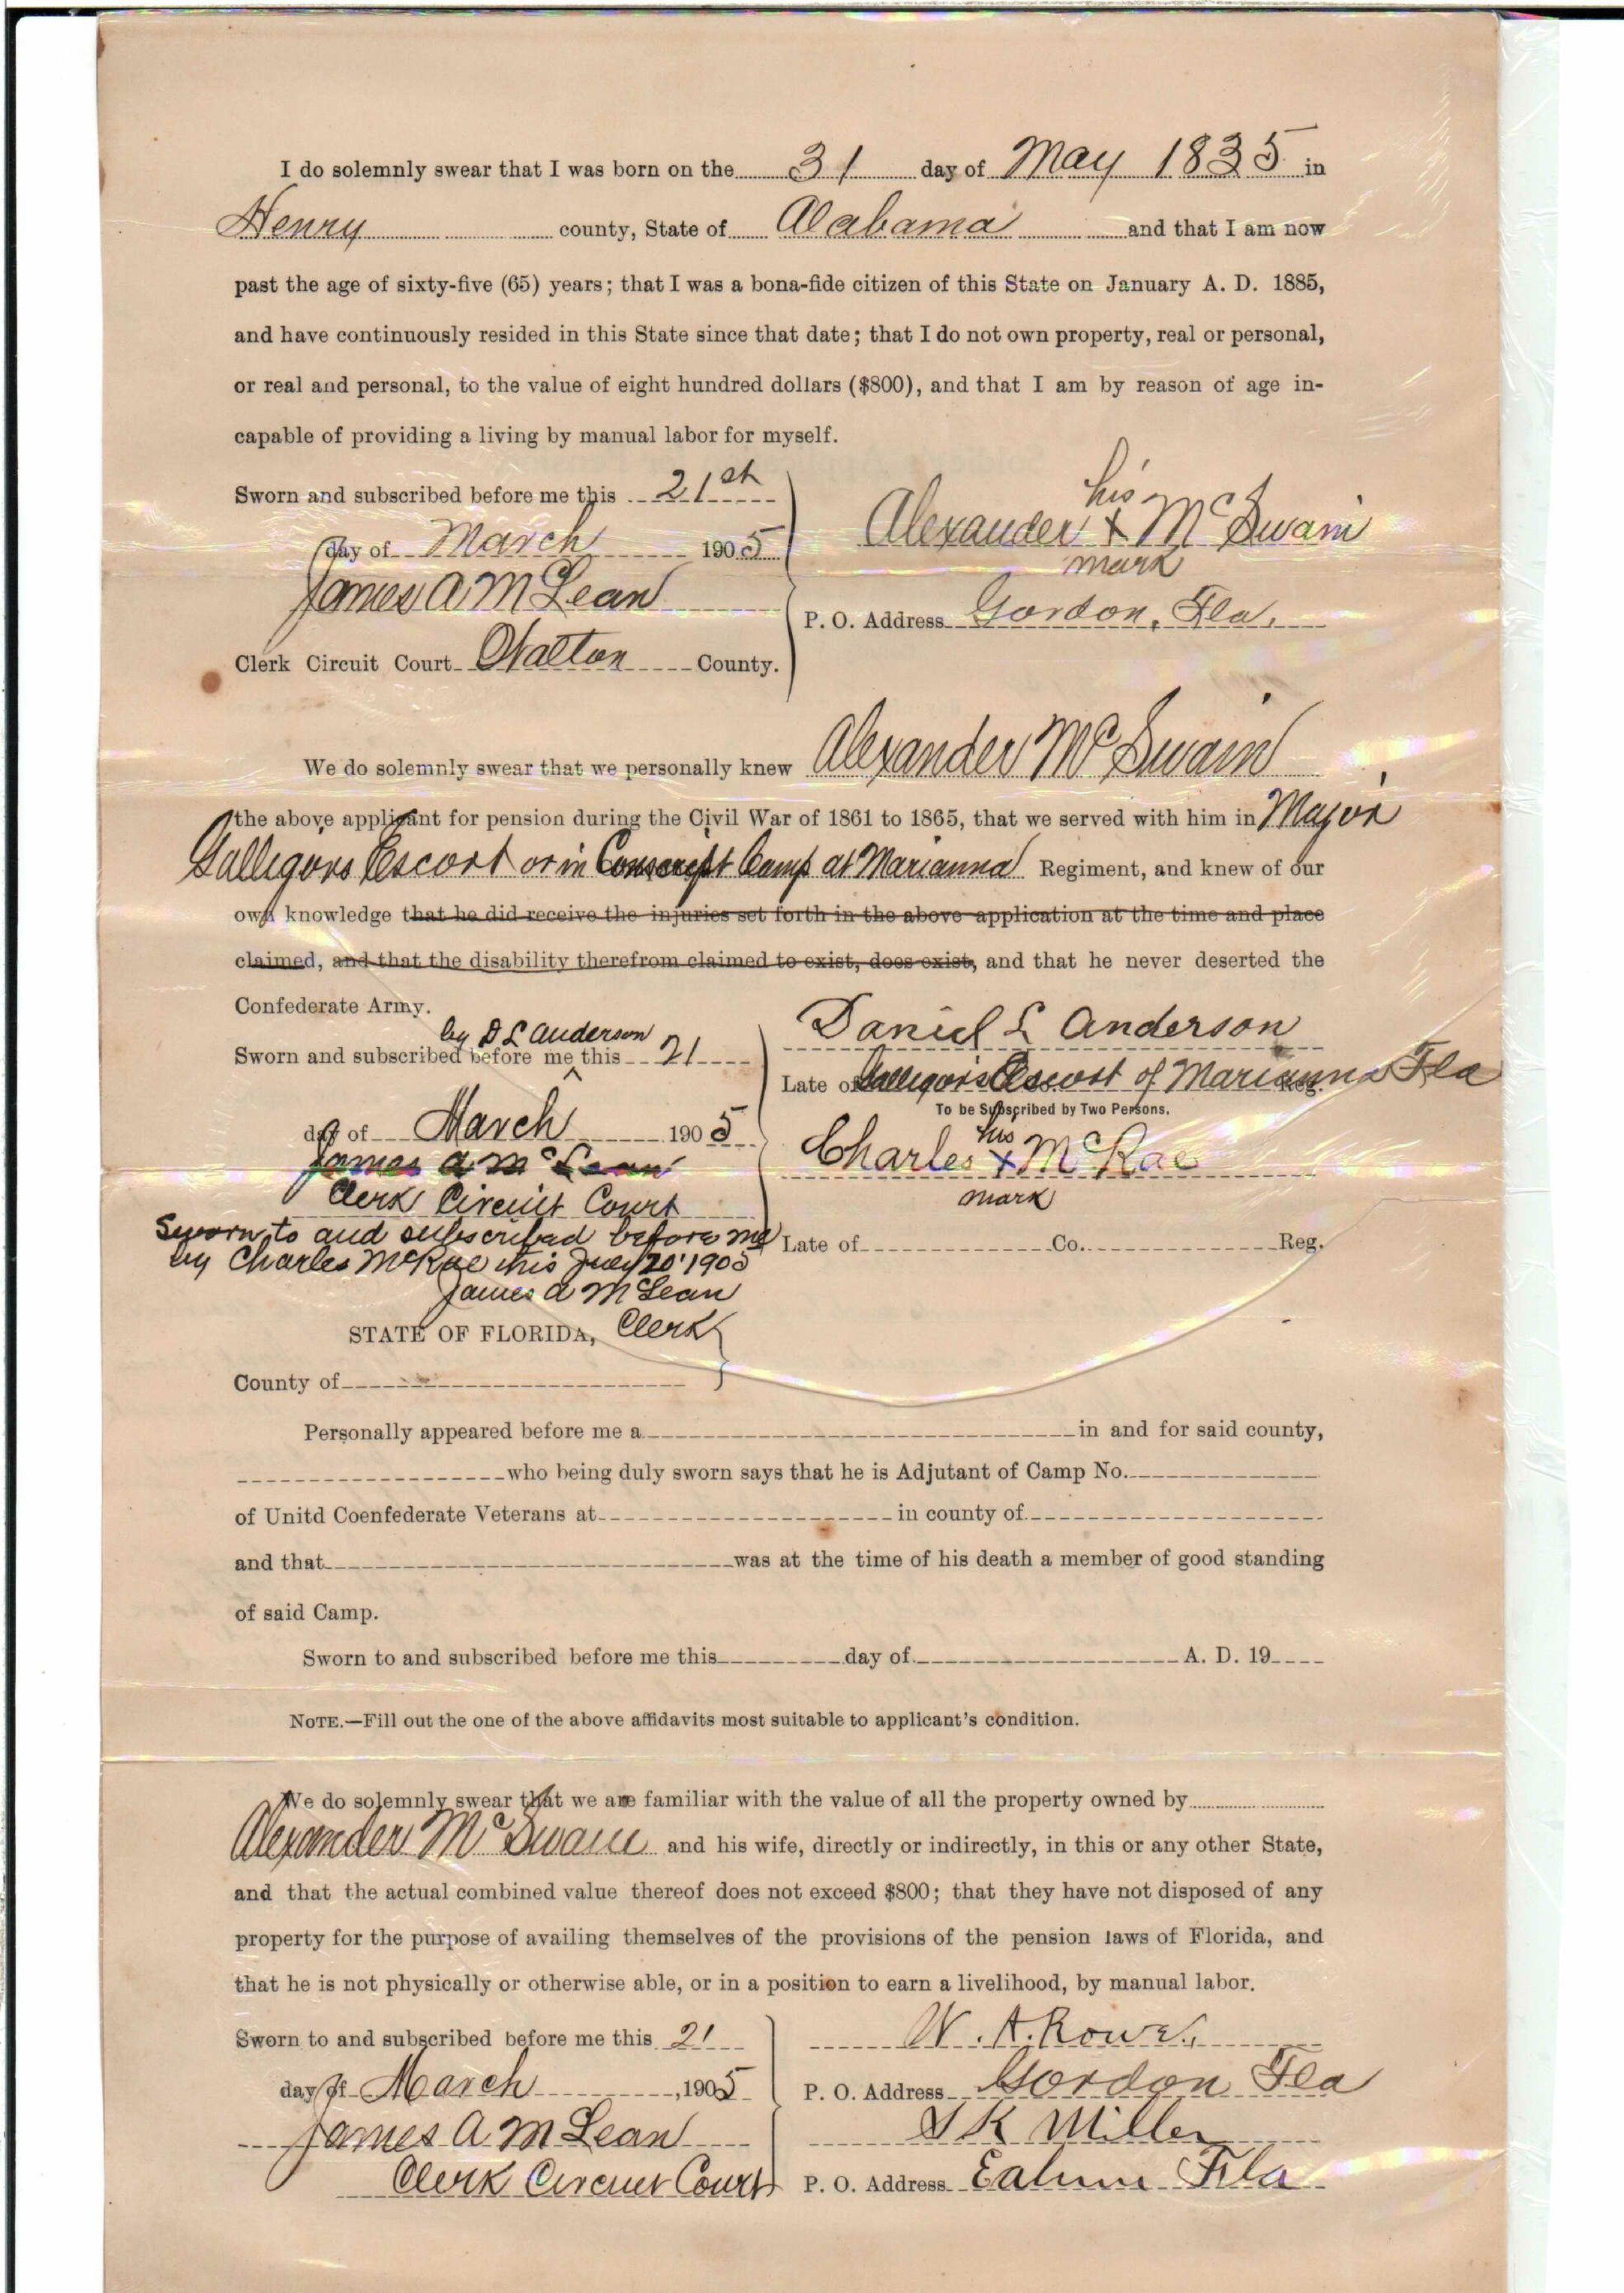 I do solemnly swear that I was born on the 31 day of May 1835 in
Henry county, State of Alabama and that I am now
past the age of sixty-five (65) years; that I was a bona-fide citizen of this State on January A. D. 1885,
and have continuously resided in this State since that date; that I do not own property, real or personal,
or real and personal, to the value of eight hundred dollars ($800), and that I am by reason of age in-
capable of providing a living by manual labor for myself.
Sworn and subscribed before me this 21st
day of March 1905
James A McLean
Clerk Circuit Court Walton County.
his
Alexander x McSwain
mark
P. O. Address Gordon, Fla.
We do solemnly swear that we personally knew Alexander McSwain
the above applicant for pension during the Civil War of 1861 to 1865, that we served with him in Major
Galligors Escort or in Conscript Camp at Marianna Regiment, and knew of our
own knowledge that he did receive the injuries set forth in the above application at the time and place
claimed, and that the disability therefrom claimed to exist, does exist, and that he never deserted the
Confederate Army.
by D L Anderson
Sworn and subscribed before me ^ this 21
day of March 1905
James A McLean
Clerk Circuit Court
Sworn to and subscribed before me
by Charles McRae this July 20 1905
James A McLean
Clerk
Daniel L Anderson
Late of Galligors Escort of Marianna Fla Reg.
To be Subscribed by Two Persons.
his
Charles x McRae
mark
Late of Co. Reg.
STATE OF FLORIDA,
County of
Personally appeared before me a in and for said county,
who being duly sworn says that he is Adjutant of Camp No.
of Unitd Coenfederate Veterans at in county of
and that was at the time of his death a member of good standing
of said Camp.
Sworn to and subscribed before me this day of A. D. 19
NOTE.—Fill out the one of the above affidavits most suitable to applicant's condition.
We do solemnly swear that we are familiar with the value of all the property owned by
Alexander McSwain and his wife, directly or indirectly, in this or any other State,
and that the actual combined value thereof does not exceed $800; that they have not disposed of any
property for the purpose of availing themselves of the provisions of the pension laws of Florida, and
that he is not physically or otherwise able, or in a position to earn a livelihood, by manual labor.
Sworn to and subscribed before me this 21
day of March, 1905
James A McLean
Clerk Circuit Court
W. A. Rowe.
P. O. Address Gordon Fla
K Miller
P. O. Address Fla